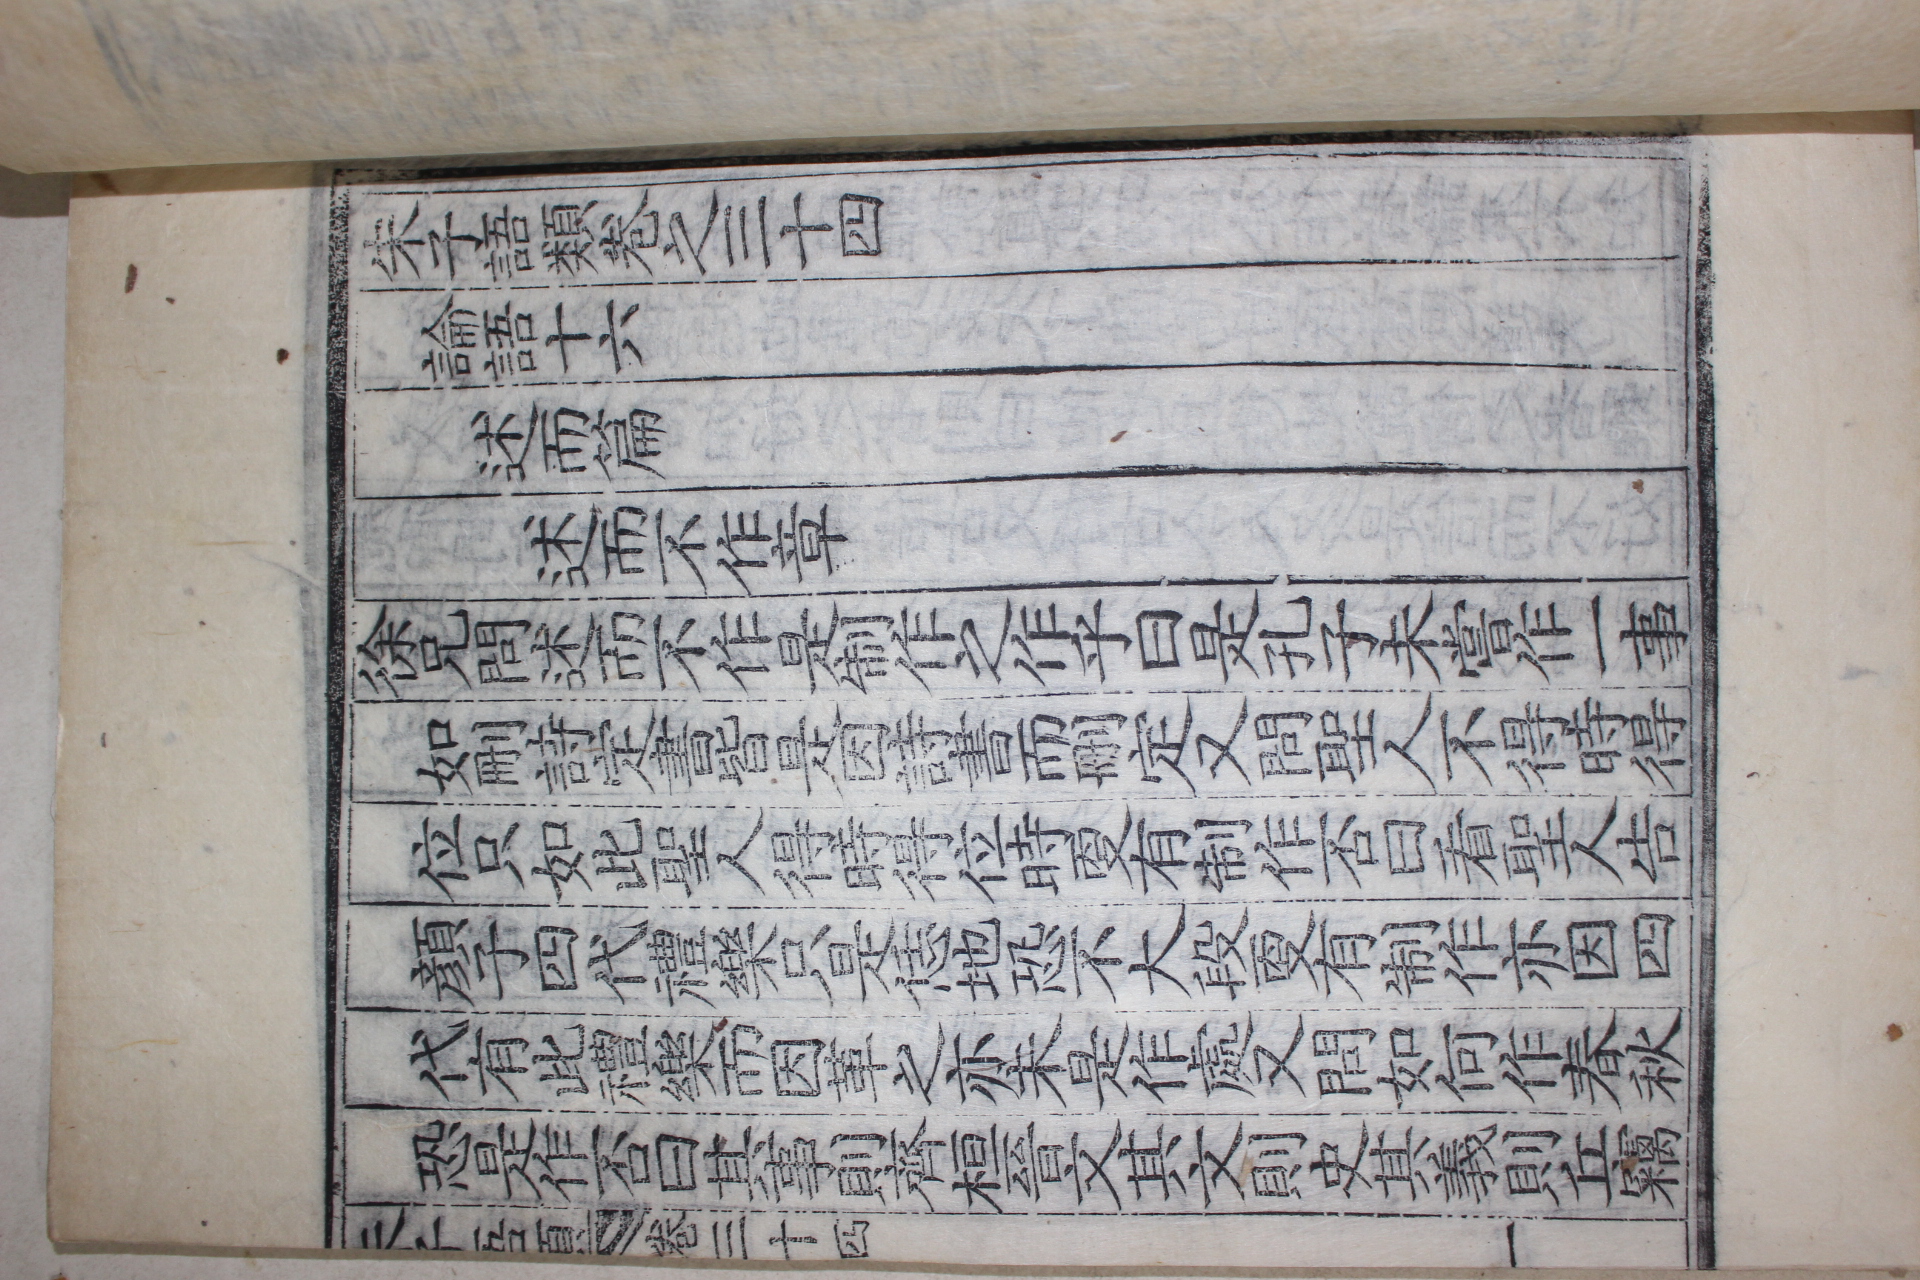 朱子語類卷之三十四
論語十六
述而篇
述而不作章
徐兄問述而不作是制作之作乎曰是孔子未嘗作一事
如刪詩定書皆是因詩書而刪定又問聖人不得時得
位只如此聖人得時得位時更有制作否曰看聖人告
顔子四代禮樂只是恁地恐不大段更有制作亦因四
代有此禮樂而因革之亦未是作處又問如何作春秋
恐是作否曰其事則齊桓晉文其文則史其義則丘竊
朱子語類 卷三十四 一